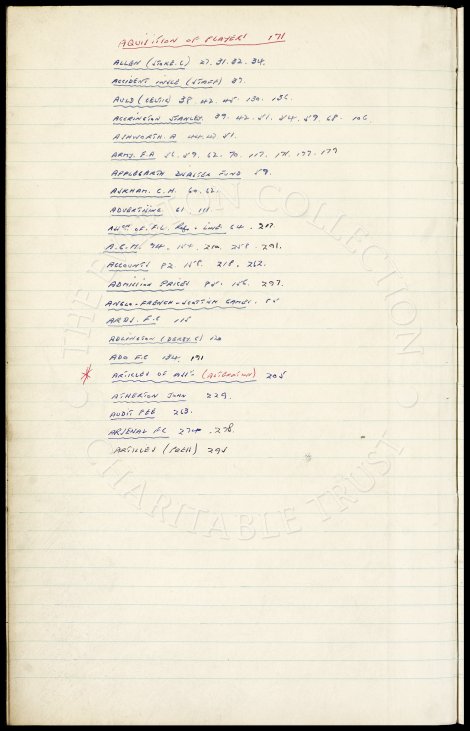 AQUISITION OF PLAYERS 171
ALLEN (STOKE. C) 27. 31. 32. 34.
ACCIDENT INSCE (STAFF) 37.
AULD (CELTIC) 38. 42. 45. 130. 136.
ACCRINGTON STANLEY. 39. 42. 51. 54. 59. 68. 106
ASHWORTH. A 44. 51.
ARMY. F.A 56. 59. 62. 70. 117. 177. 179
APPLEGARTH BENEFIT FUND 59.
ASKHAM. C.H. 60. 62.
ADVERTISING 61. 111.
ASSN. OF F.L. Ref. & LINE 64. 207.
A.G.M. 94. 154. 210. 258. 291.
ACCOUNTS 92 158. 218. 262.
ADMISSION PRICES 95. 156. 297.
ANGLO-FRENCH-SCOTTISH GAMES.
ARDS. F.C 115
ADLINGTON (DERBY. C) 120
ADO F.C 134. 191
* ARTICLES OF ASS'N (ALTERATION) 205
ATHERTON JOHN 229.
AUDIT FEE 263.
ARSENAL FC 274. 278.
ARTICLES 295
THE COLLECTION CHARITABLE TRUST